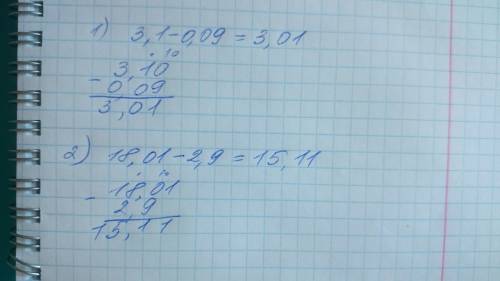 1) 3,1-0,09=3,01
. 10
- 3,10
0,09
3,01
2) 18,01-2,9=15,11
. 10
- 18,01
2,9
15,11